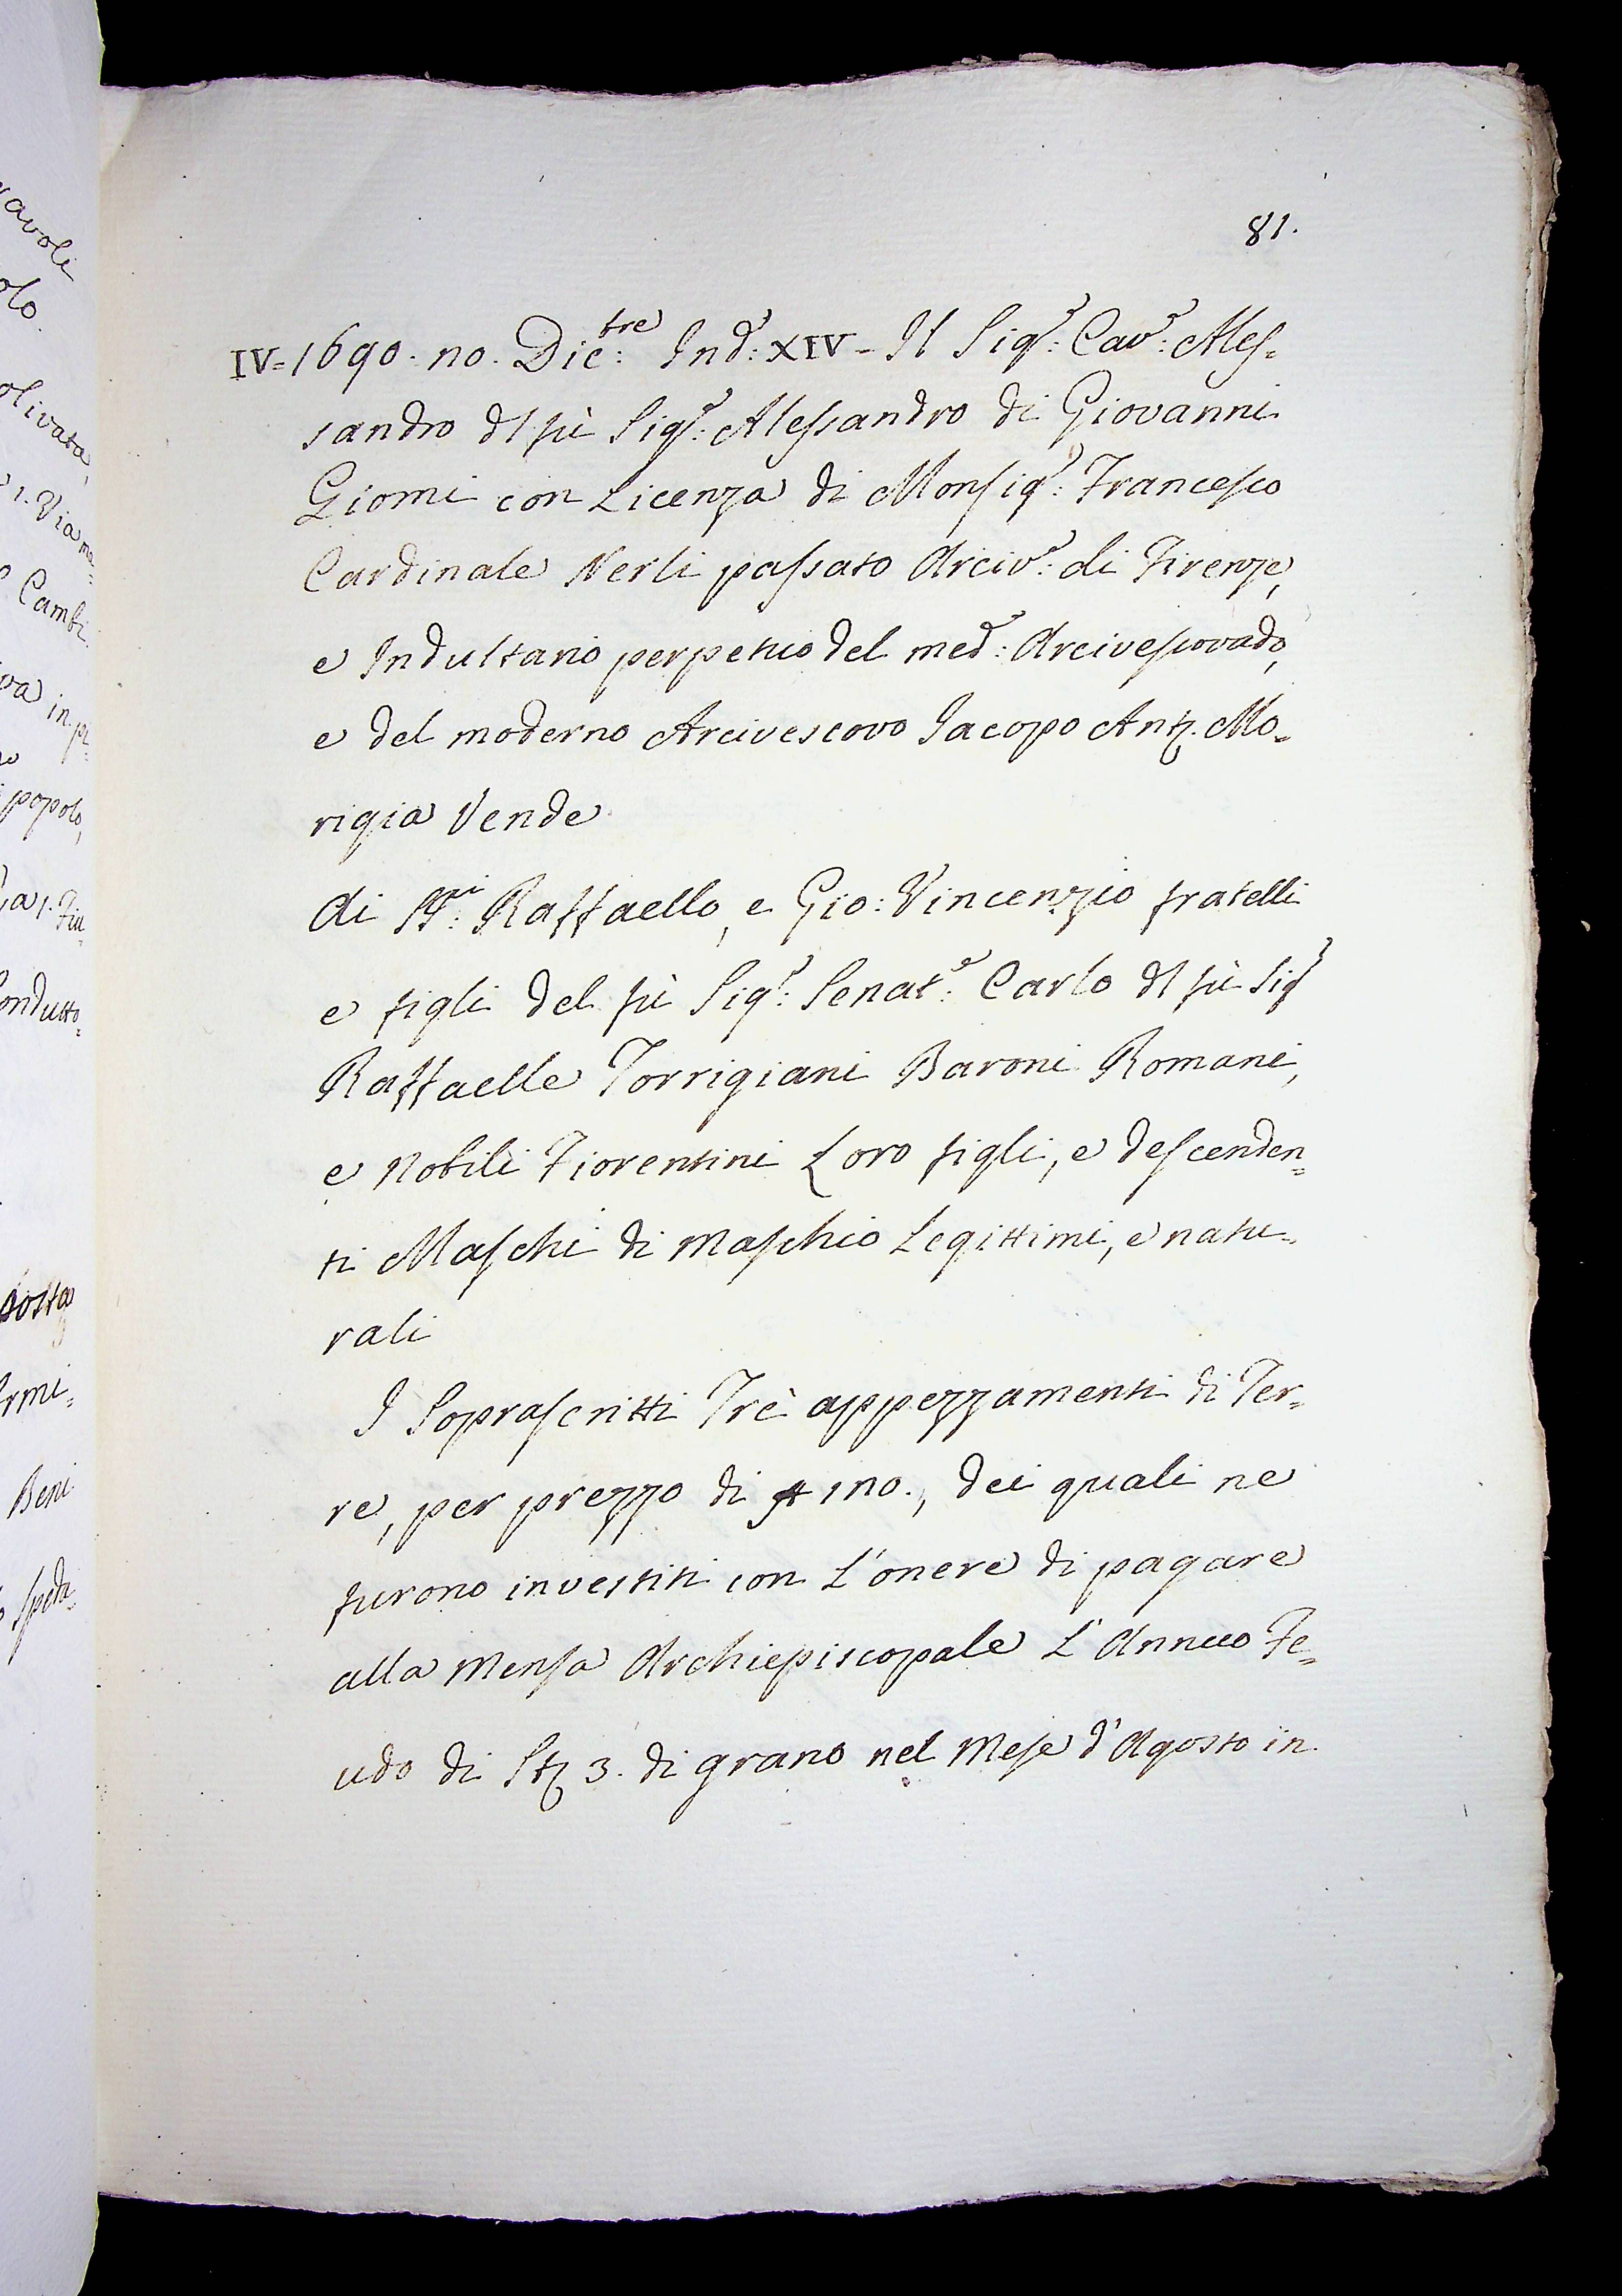 81.
IV=1690. no. Dic:bre Ind: XIV - Il Sigr: Cavr: Ales=
sandro dl fù Sigr: Alessandro di Giovanni
Giomi con Licenza di Monsigr: Francesco
Cardinale Nerli passato Arciv: di Firenze,
e Indultario perpetuo del med: Arcivescovado,
e del moderno Arcivescovo Jacopo Ant. Mo=
rigia Vende
di SSri: Raffaello, e Gio: Vincenzio fratelli
e figli del fù Sigr: Senatr: Carlo dl fù Sigr
Raffaelle Torrigiani Baroni Romani,
e Nobili Fiorentini Loro figli, e descenden=
ti Maschi di Maschio Legittimi, e natu=
rali
I Soprascritti Trè appezzamenti di Ter=
re, per prezzo di 110., dei quali ne
furono investiti con L'onere di pagare
alla Mensa Archiepiscopale L'Annuo Fe=
udo di St 3. di grano nel Mese d'Agosto in
popolo,
Cambi
Beni